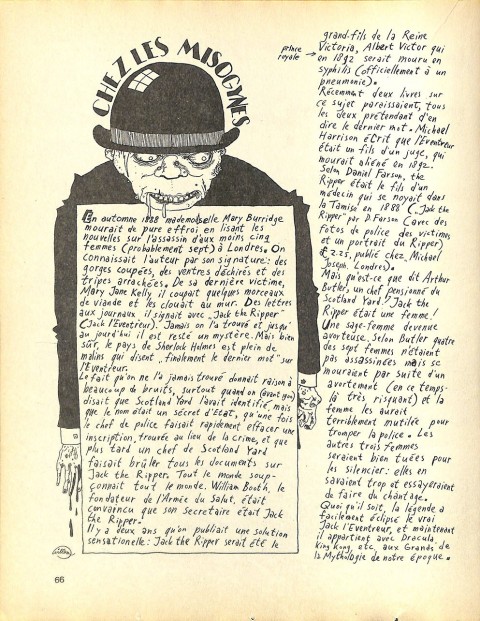 CHEZ LES MISOGYNES
En automne 1888 mademoiselle Mary Burridge
mourait de pure effroi en lisant les
nouvelles sur l'assassin d'aux moins cinq
femmes (probablement sept) à Londres. On
connaissait l'auteur par son signature: des
gorges coupées, des ventres déchirés et des
tripes arrachées. De sa dernière victime,
Mary Jane Kelly il coupait quelques morceaux
de viande et les clouait au mur. Des lettres
aux journaux il signait avec „Jack the Ripper"
(Jack l'Eventreur). Jamais on l'a trouvé et jusqu'
au jourd'hui il est resté un mystère. Mais bien
sûr, le pays de Sherlock Holmes est plein de
malins qui disent „finalement le dernier mot" sur
l'Eventreur.
Le fait qu'on ne l'a jamais trouvé donnait raison à
beaucoup de bruits, surtout quand on (avant you)
disait que Scotland Yard l'avait identifié, mais
que le nom était un sécret d'Etat, qu'une fois
le chef de police faisait rapidement effacer une
inscription, trouvée au lieu de la crime, et que
plus tard un chef de Scotland Yard
faisait brûler tous les documents sur
Jack the Ripper. Tout le monde soup-
çonnait tout le monde. William Booth, le
fondateur de l'Armée du Salut, était
convaincu que son Secretaire était Jack
the Ripper.
Il y a deux ans qu'on publiait une solution
sensationelle: Jack the Ripper serait été le
prince
royale →
grand-fils de la Reine
Victoria, Albert Victor qui
en 1892 serait mouru en
syphilis (officiellement à un
pneumonie).
Récemment deux livres sur
ce sujet paraissaient, tous
les deux prétendant d'en
dire le dernier mot. Michael
Harrison écrit que l'Eventreur
était un fils d'un juge, qui
mourait aliéné en 1892.
Selon Daniel Farson, the
Ripper était le fils d'un
médecin qui se noyait dans
la Tamise en 1888 („Jack the
Ripper" par D. Farson (avec des
fotos de police des victimes
et un portrait du Ripper)
£ 2.25, publié chez Michael
Joseph, Londres).
Mais qu'est-ce que dit Arthur
Butler, un chef pensionné du
Scotland Yard? Jack the
Ripper était une femme!
Une sage-femme devenue
avorteuse. Selon Butler quatre
des sept femmes n'étaient
pas assassinées mais se
mouraient par suite d'un
avortement (en ce temps-
là très risquant) et la
femme les aurait
terriblement mutilée pour
tromper la police. Les
autres trois femmes
seraient bien tuées pour
les silencier: elles en
savaient trop et essayeraient
de faire du chantage.
Quoi qu'il soit, la légende a
facilement éclipsé le vrai
Jack l'Eventreur, et maintenant
il appartient avec Dracula
King Kong, etc, aux Grands de
la Mythologie de notre époque.
66